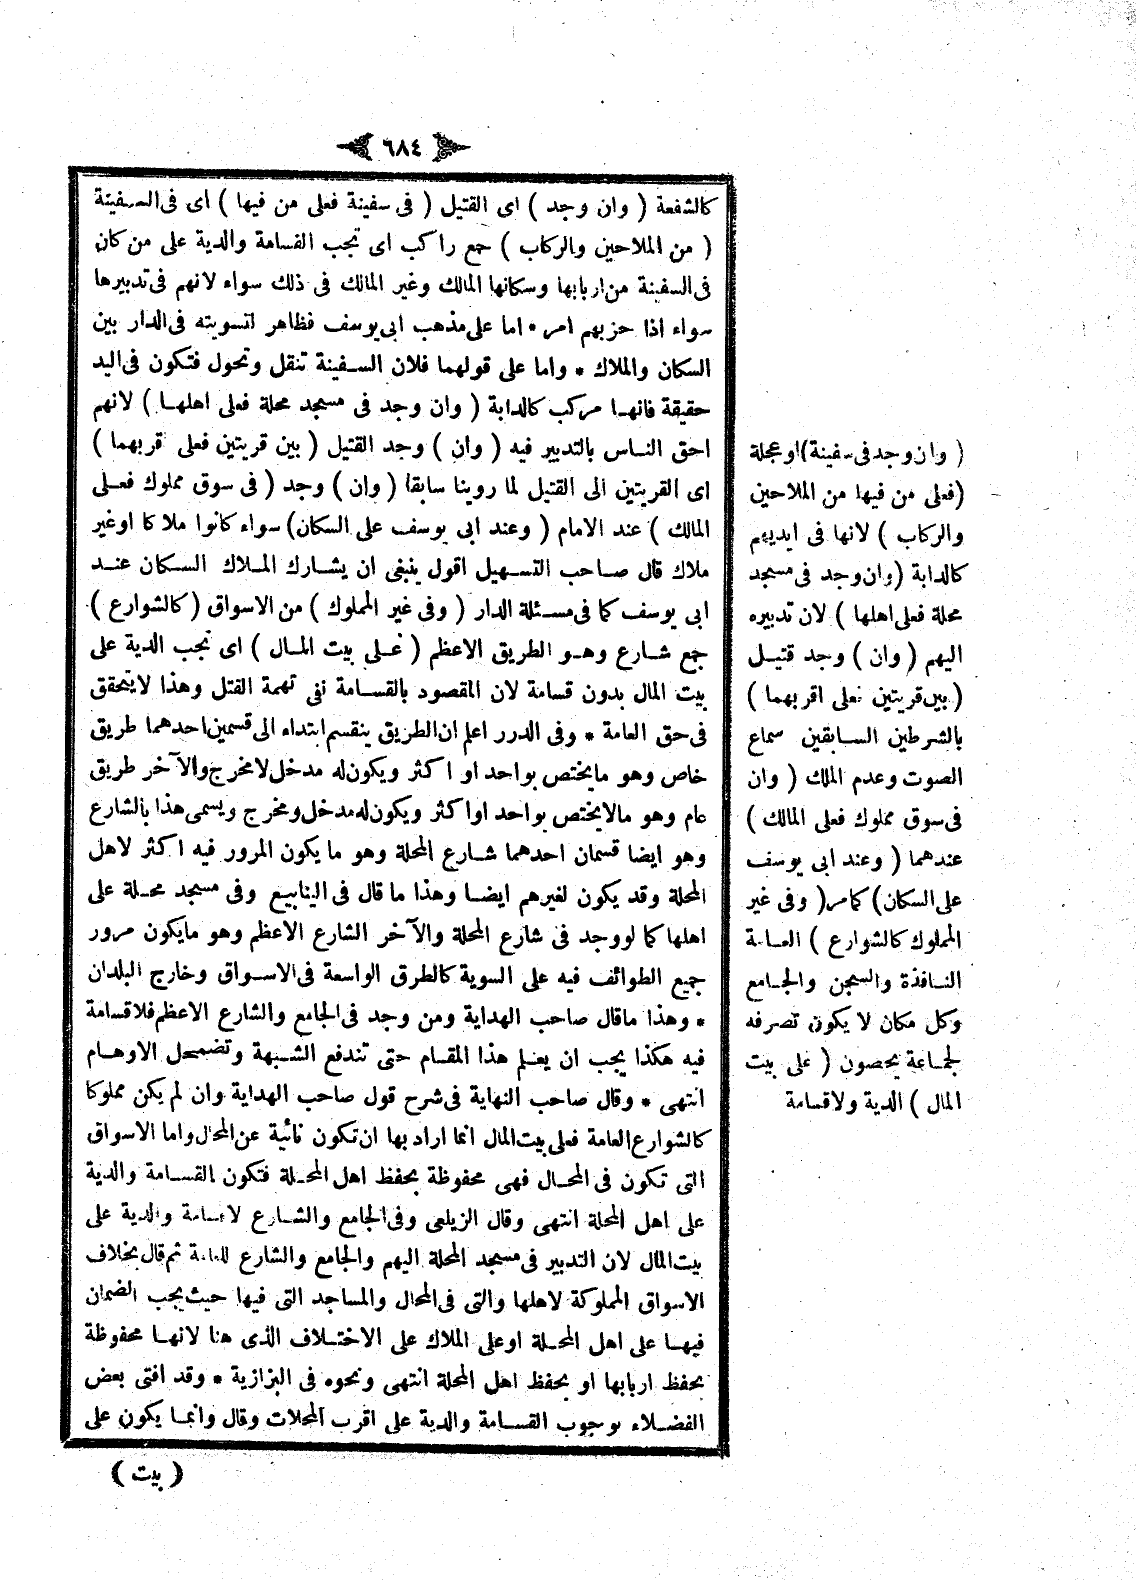 ٦٨٤
كالشفعة ( وان وجد ) اى القتيل ( فى سفينة فعلى من فيها ) اى فى السفينة
( من الملاحين والركاب ) جمع راكب اى تجب القسامة والدية على من كان
فى السفينة من اربابها وسكانها المالك وغير المالك فى ذلك سواء لانهم فى تدبيرها
سواء اذا حزبهم امر * اما على مذهب ابى يوسف فظاهر لتسويته فى الدار بين
السكان والملاك * واما على قولهما فلان السفينة تنقل وتحول فتكون فى اليد
حقيقة فانها مركب كالدابة ( وان وجد فى مسجد محلة فعلى اهلها ) لانهم
احق الناس بالتدبير فيه ( وان ) وجد القتيل ( بين قريتين فعلى اقربهما )
اى القريتين الى القتيل لما روينا سابقا ( وان ) وجد ( فى سوق مملوك فعلى
المالك ) عند الامام ( وعند ابى يوسف على السكان) سواء كانوا ملاكا اوغير
ملاك قال صاحب التسهيل اقول ينبغى ان يشارك الملاك السكان عند
ابى يوسف كما فى مسئلة الدار ( وفى غير المملوك ) من الاسواق ( كالشوارع )
جمع شارع وهو الطريق الاعظم ( فعلى بيت المال ) اى تجب الدية على
بيت المال بدون قسامة لان المقصود بالقسامة نفى تهمة القتل وهذا لايتحقق
فى حق العامة * وفى الدرر اعلم ان الطريق ينقسم ابتداء الى قسمين احدهما طريق
خاص وهو مايختص بواحد او اكثر ويكون له مدخل لامخرج والآخر طريق
عام وهو مالايختص بواحد اواكثر ويكون له مدخل ومخرج ويسمى هذا بالشارع
وهو ايضا قسمان احدهما شارع المحلة وهو ما يكون المرور فيه اكثر لاهل
المحلة وقد يكون لغيرهم ايضا وهذا ما قال فى الينابيع وفى مسجد محلة على
اهلها كما لووجد فى شارع المحلة والآخر الشارع الاعظم وهو مايكون مرور
جميع الطوائف فيه على السوية كالطرق الواسعة فى الاسواق وخارج البلدان
* وهذا ماقال صاحب الهداية ومن وجد فى الجامع والشارع الاعظم فلاقسامة
فيه هكذا يجب ان يعلم هذا المقام حتى تندفع الشبهة وتضمحل الاوهام
انتهى * وقال صاحب النهاية فى شرح قول صاحب الهداية وان لم يكن مملوكا
كالشوارع العامة فعلى بيت المال انما اراد بها ان تكون نائية عن المحال واما الاسواق
التى تكون فى المحال فهى محفوظة بحفظ اهل المحلة فتكون القسامة والدية
على اهل المحلة انتهى وقال الزيلعى وفى الجامع والشارع لاقسامة والدية على
بيت المال لان التدبير فى مسجد المحلة اليهم والجامع والشارع للعامة ثم قال بخلاف
الاسواق المملوكة لاهلها والتى فى المحال والمساجد التى فيها حيث يجب الضمان
فيها على اهل المحلة اوعلى الملاك على الاختلاف الذى هنا لانها محفوظة
بحفظ اربابها او بحفظ اهل المحلة انتهى ونحوه فى البزازية * وقد افتى بعض
الفضلاء بوجوب القسامة والدية على اقرب المحلات وقال وانما يكون على
( بيت )
( وان وجد فى سفينة)اوعجلة
(فعلى من فيها من الملاحين
والركاب ) لانها فى ايديهم
كالدابة (وان وجد فى مسجد
محلة فعلى اهلها ) لان تدبيره
اليهم ( وان ) وجد قتيل
( بين قريتين فعلى اقربهما )
بالشرطين السابقين سماع
الصوت وعدم الملك ( وان
فى سوق مملوك فعلى المالك )
عندهما ( وعند ابى يوسف
على السكان) كمامر( وفى غير
المملوك كالشوارع ) العامة
النافذة والسجن والجامع
وكل مكان لا يكون تصرفه
لجماعة يحصون ( على بيت
المال ) الدية ولاقسامة